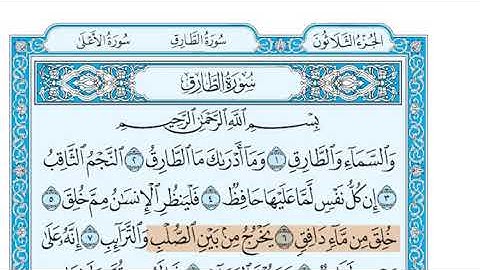 الجزء الثلاثون
سورة الطارق
سورة الأعلى
سُورَةُ الطَّارِقِ
بِسْمِ ٱللَّهِ ٱلرَّحْمَٰنِ ٱلرَّحِيمِ
وَٱلسَّمَآءِ وَٱلطَّارِقِ ١ وَمَآ أَدْرَىٰكَ مَا ٱلطَّارِقُ ٢ ٱلنَّجْمُ ٱلثَّاقِبُ
٣ إِن كُلُّ نَفْسٍ لَّمَّا عَلَيْهَا حَافِظٌ ٤ فَلْيَنظُرِ ٱلْإِنسَٰنُ مِمَّ خُلِقَ ٥
خُلِقَ مِن مَّآءٍ دَافِقٍ ٦ يَخْرُجُ مِنۢ بَيْنِ ٱلصُّلْبِ وَٱلتَّرَآئِبِ ٧ إِنَّهُۥ عَلَىٰ